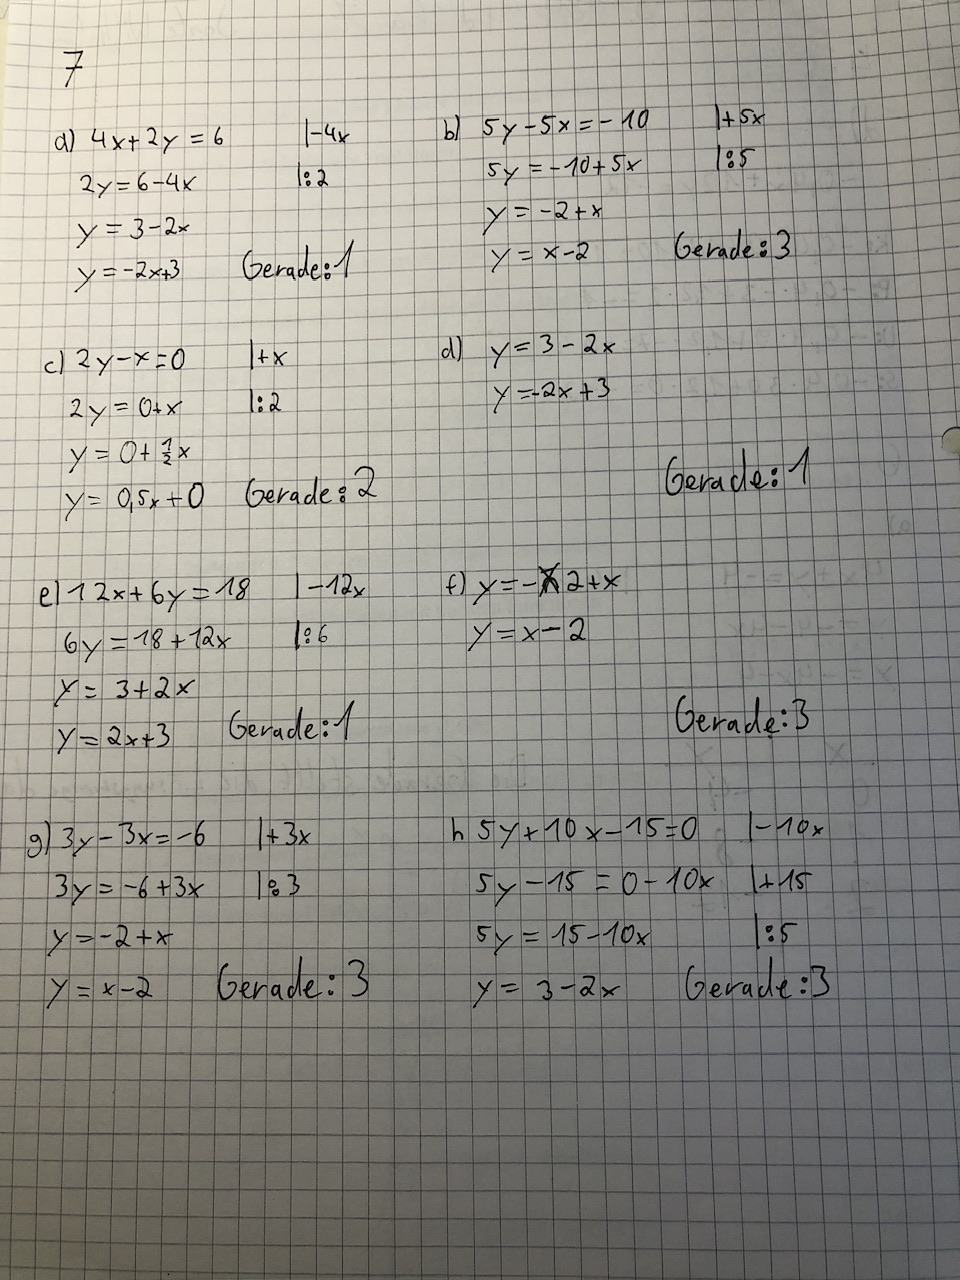 7
a) 4x+2y=6 |-4x
2y=6-4x |:2
y=3-2x
y=-2x+3 Gerade:1
b) 5y-5x=-10 |+5x
5y=-10+5x |:5
y=-2+x
y=x-2 Gerade:3
c) 2y-x=0 |+x
2y=0+x |:2
y=0+½x
y=0,5x+0 Gerade:2
d) y=3-2x
y=-2x+3
Gerade:1
e) 12x+6y=18 |-12x
6y=18+12x |:6
y=3+2x
y=2x+3 Gerade:1
f) y=-2+x
y=x-2
Gerade:3
g) 3y-3x=-6 |+3x
3y=-6+3x |:3
y=-2+x
y=x-2 Gerade:3
h 5y+10x-15=0 |-10x
5y-15=0-10x |+15
5y=15-10x |:5
y=3-2x Gerade:3